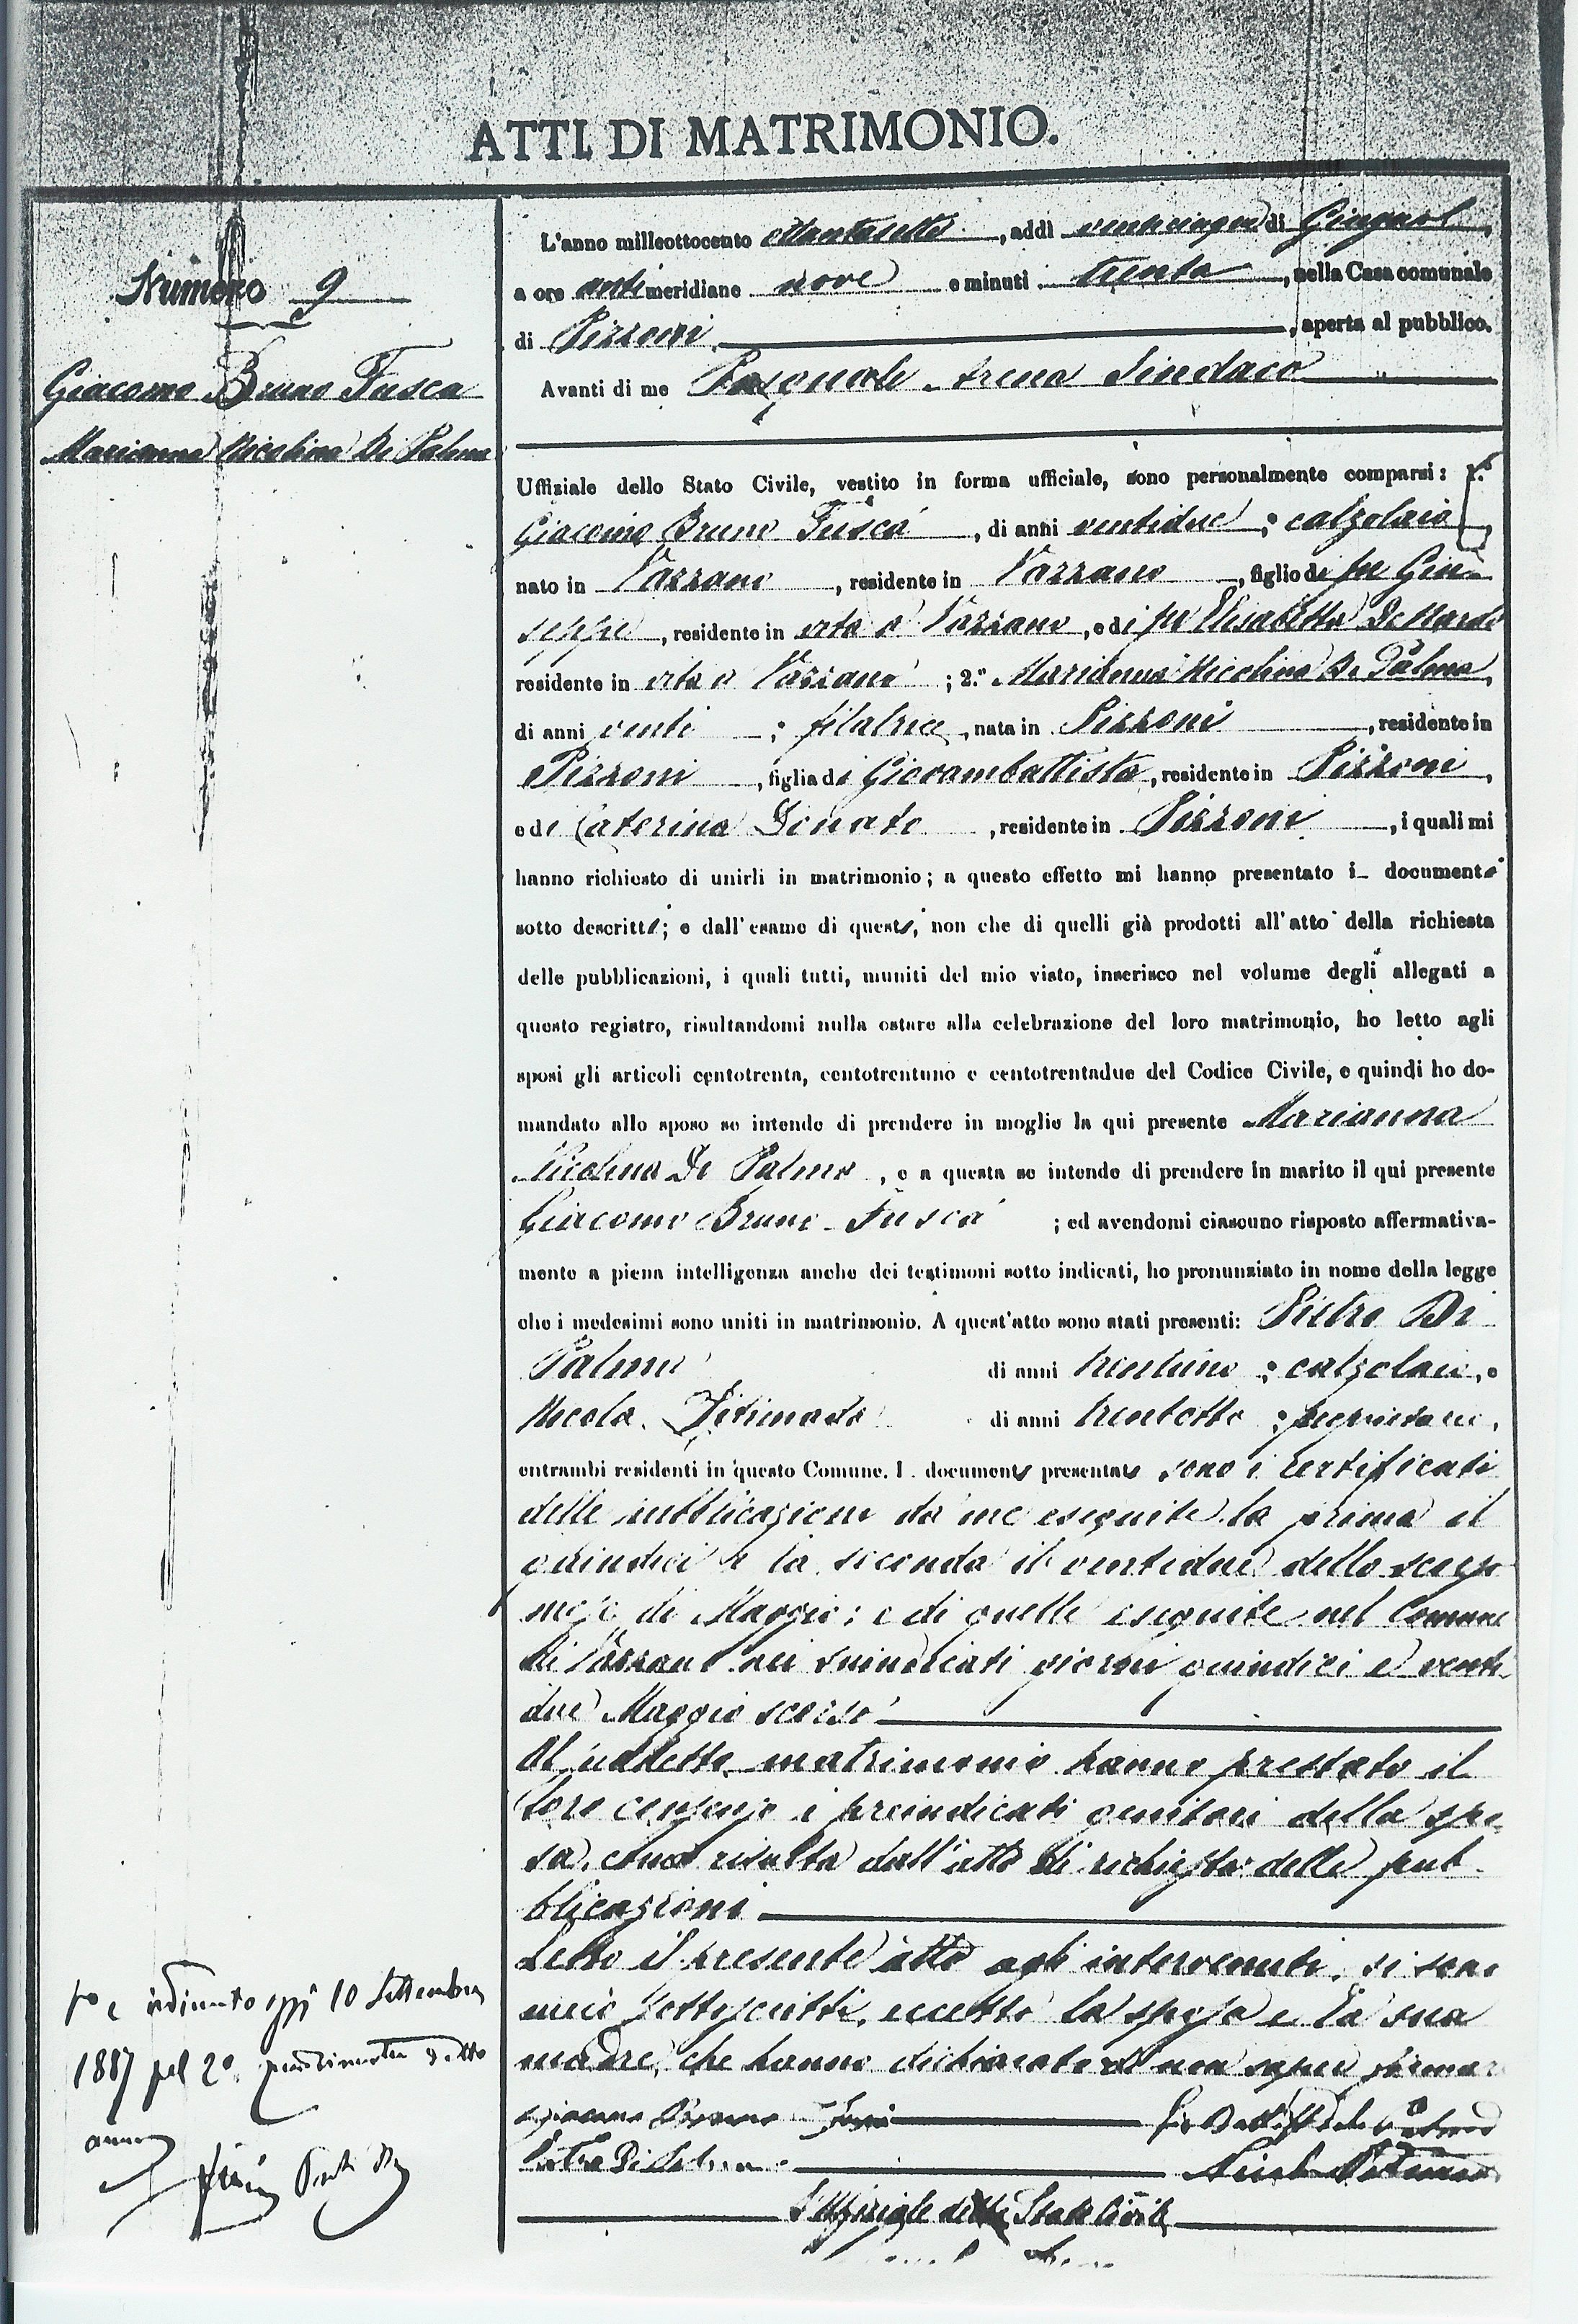 ATTI DI MATRIMONIO.
Numero 9
Giacomo Bruno Fusca
Marianna Nicolina Di Palma
L'anno milleottocento ottantasette, addì venticinque di Giugno,
a ore antimeridiane nove e minuti trenta, nella Casa comunale
di Pizzoni, aperta al pubblico.
Avanti di me Pasquale Arena Sindaco
Uffiziale dello Stato Civile, vestito in forma ufficiale, sono personalmente comparsi: 1.°
Giacomo Bruno Fuscà, di anni ventidue; calzolaio,
nato in Vazzano, residente in Vazzano, figlio di fu Giu-
seppe, residente in vita a Vazzano, e di fu Elisabetta De Nardo
residente in vita a Vazzano; 2.° Marianna Nicolina Di Palma,
di anni venti; filatrice, nata in Pizzoni, residente in
Pizzoni, figlia di Giovambattista, residente in Pizzoni,
e di Caterina Donato, residente in Pizzoni, i quali mi
hanno richiesto di unirli in matrimonio; a questo effetto mi hanno presentato i documenti
sotto descritti; e dall'esame di questi, non che di quelli già prodotti all'atto della richiesta
delle pubblicazioni, i quali tutti, muniti del mio visto, inserisco nel volume degli allegati a
questo registro, risultandomi nulla ostare alla celebrazione del loro matrimonio, ho letto agli
sposi gli articoli centotrenta, centotrentuno e centotrentadue del Codice Civile, e quindi ho do-
mandato allo sposo se intende di prendere in moglie la qui presente Marianna
Nicolina Di Palma, e a questa se intende di prendere in marito il qui presente
Giacomo Bruno Fuscà; ed avendomi ciascuno risposto affermativa-
mente a piena intelligenza anche dei testimoni sotto indicati, ho pronunziato in nome della legge
che i medesimi sono uniti in matrimonio. A quest'atto sono stati presenti: Pietro Di
Palma di anni trentuno; calzolaio, e
Nicola di anni trentotto; proprietario,
entrambi residenti in questo Comune. I documenti presentati sono i certificati
delle pubblicazioni da me eseguite la prima il
quindici e la seconda il ventidue dello scorso
mese di Maggio; e di quelle eseguite nel Comune
di Vazzano nei suindicati giorni quindici e venti
due Maggio scorso
Al suddetto matrimonio hanno prestato il
loro consenso i preindicati genitori della spo
sa, come risulta dall'atto di richiesta delle pub
blicazioni
Letto il presente atto agli intervenuti, si sono
meco sottoscritti, eccetto la sposa e la sua
madre, che hanno dichiarato di non saper firmare
Giacomo Bruno Fuscà
Pietro Di Palma
L'Uffiziale dello Stato Civile
oggi 10 Settembre
1887 pel 2° detto
anno